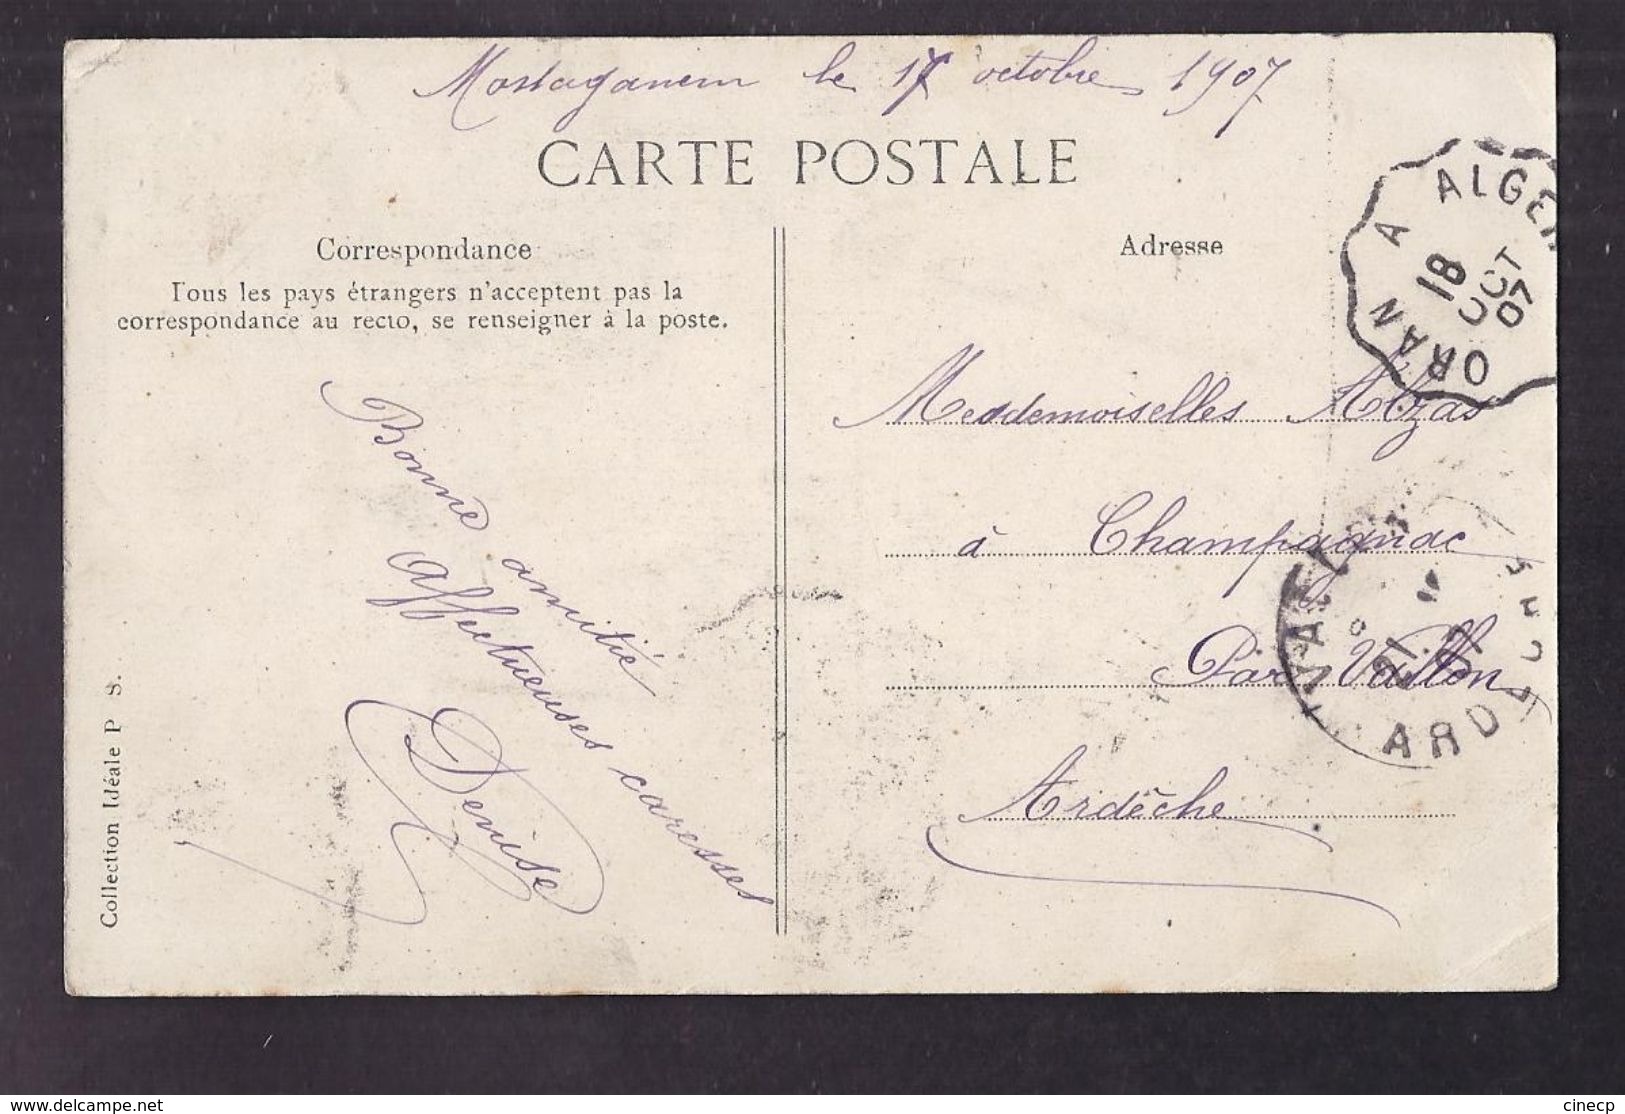 Mostaganem le 17 octobre 1907
CARTE POSTALE
Correspondance
Tous les pays étrangers n'acceptent pas la
correspondance au recto, se renseigner à la poste.
Bonne amitié
affectueuses caresses
Denise
Collection Idéale P. S.
Adresse
Mesdemoiselles Alzas
à Champagnac
Par Vallon
Ardèche
ORAN A ALGER
18
OCT
07
ARD
www.delcampe.net
cinecp